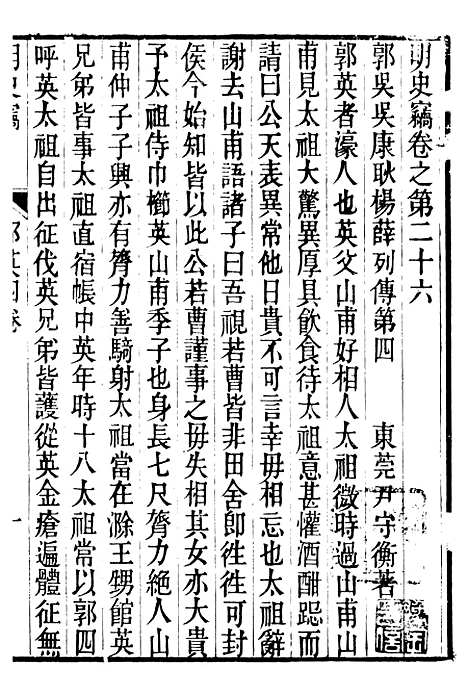 明史竊卷之第二十六
郭吳吳康耿楊薛列傳第四　東莞尹守衡著
郭英者濠人也英父山甫好相人太祖微時過山甫山
甫見太祖大驚異厚具飲食待太祖意甚懽酒酣跽而
請曰公天表異常他日貴不可言幸毋相忘也太祖辭
謝去山甫語諸子曰吾視若曹皆非田舍郎徃徃可封
侯今始知皆以此公若曹謹事之毋失相其女亦大貴
予太祖侍巾櫛英山甫季子也身長七尺膂力絶人山
甫仲子子興亦有膂力善騎射太祖當在滁王甥館英
兄弟皆事太祖直宿帳中英年時十八太祖常以郭四
呼英太祖自出征伐英兄弟皆護從英金瘡遍體征無